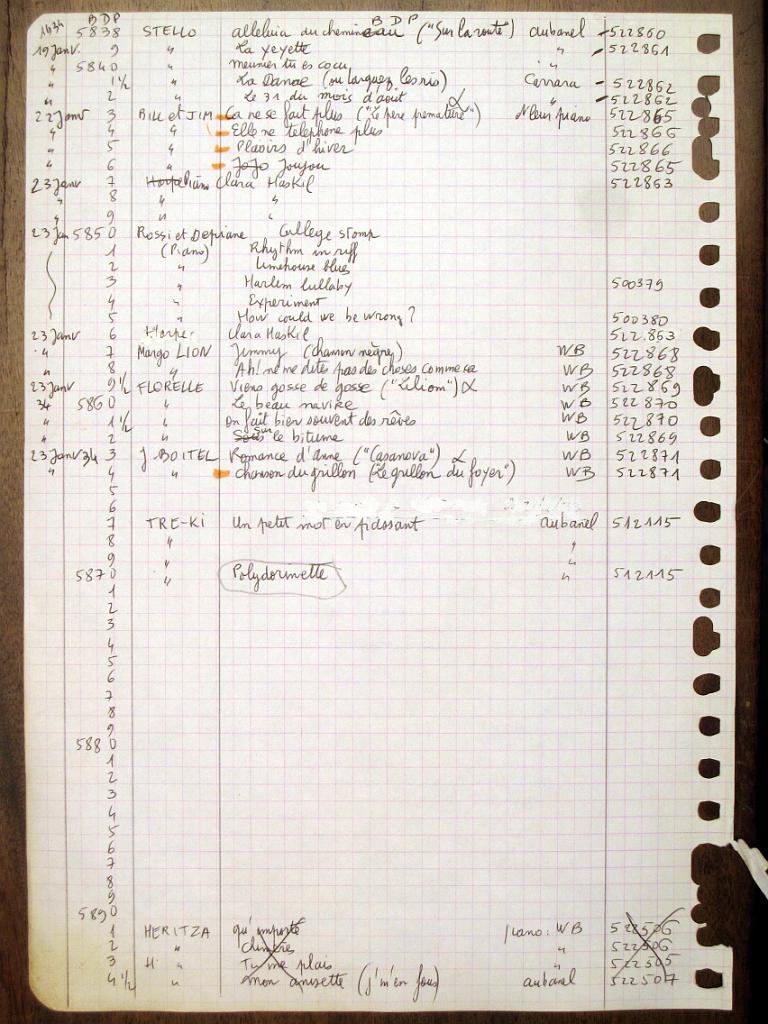 1934 BDP BDP
5838 STELLO alleluia du chemineau ("Sur la route") aubanel 522860
19 Janv. 9 " La yeyette " 522861
" 5840 " meunier tu es cocu "
" 1½ " La Danae (ou larguez les ris) Cerrara 522862
" 2 " Le 31 du mois d'août " 522862
22 Janv 3 BILL et JIM Ca ne se fait plus ("Le père prématuré") piano 522865
" 4 " Elle ne telephone plus 522866
" 5 " Plaisirs d'hiver 522866
" 6 " JoJo Joujou 522865
23 Janv 7 Harpe Piano Clara Haskil 522863
" 8 " "
" 9 " "
23 Jan 5850 Rossi et Depiane College stomp
1 (Piano) Rhythm in riff
2 " Limehouse blues
3 " Harlem lullaby 500379
4 " Experiment
5 " How could we be wrong? 500380
23 Janv 6 Harpe Clara Haskil 522.863
" 7 Margo LION Jimmy (chanson nègre) WB 522868
" 8 " Ah! ne me dites pas des choses comme ça WB 522868
23 Janv 9½ FLORELLE Viens gosse de gosse ("Liliom") WB 522869
34 5860 " Le beau navire WB 522870
" 1½ " on fait bien souvent des rêves WB 522870
" 2 " Sous sur le bitume WB 522869
23 Janv 34 3 J BOITEL Romance d'Anne ("Casanova") WB 522871
" 4 " chanson du grillon (Le grillon du foyer") WB 522871
5
6
7 TRE-KI Un petit mot en passant aubanel 512115
8 " "
9 " "
5870 " Polydorinette " 512115
1
2
3
4
5
6
7
8
9
5880
1
2
3
4
5
6
7
8
9
5890
1 HERITZA qu'importe piano: WB 522506
2 " chimères " 522506
3 H. " Tu me plais " 522505
4½ " mon anisette (j'm'en fous) aubanel 522507